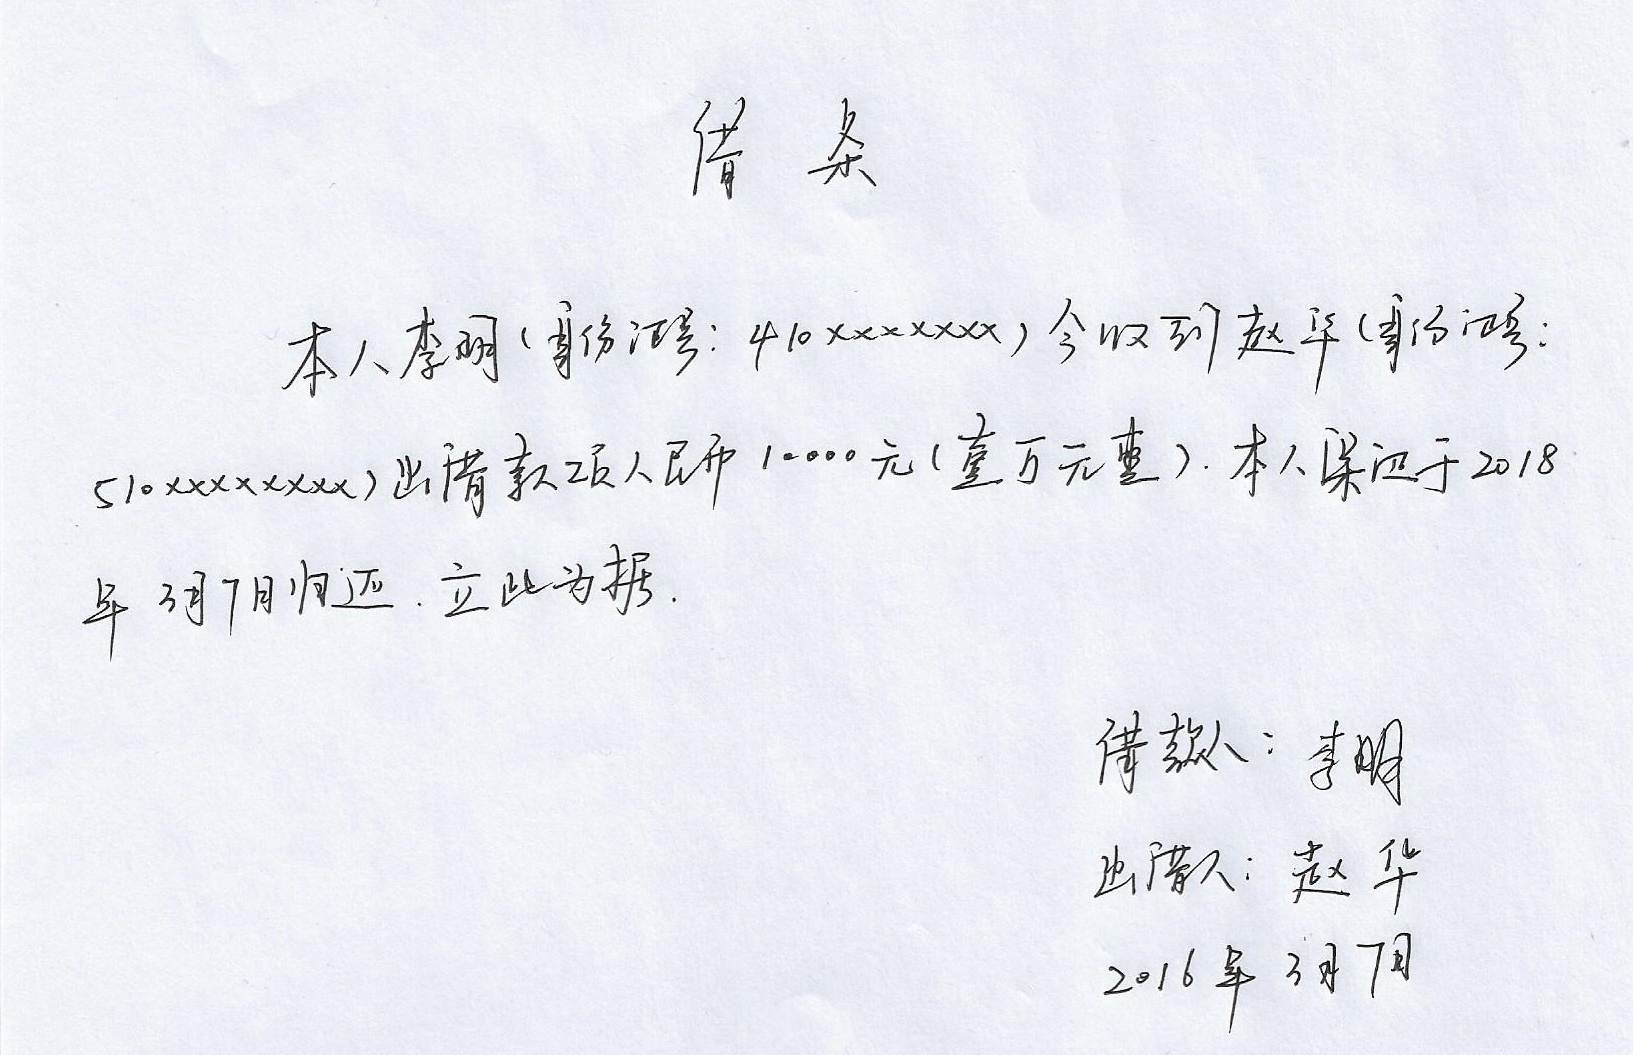 借条
本人李明(身份证号:410xxxxxxxx)今收到赵华(身份证号:
510xxxxxxxxx)出借款项人民币10000元(壹万元整).本人承诺于2018
年3月7日归还.立此为据.
借款人:李明
出借人:赵华
2016年3月7日